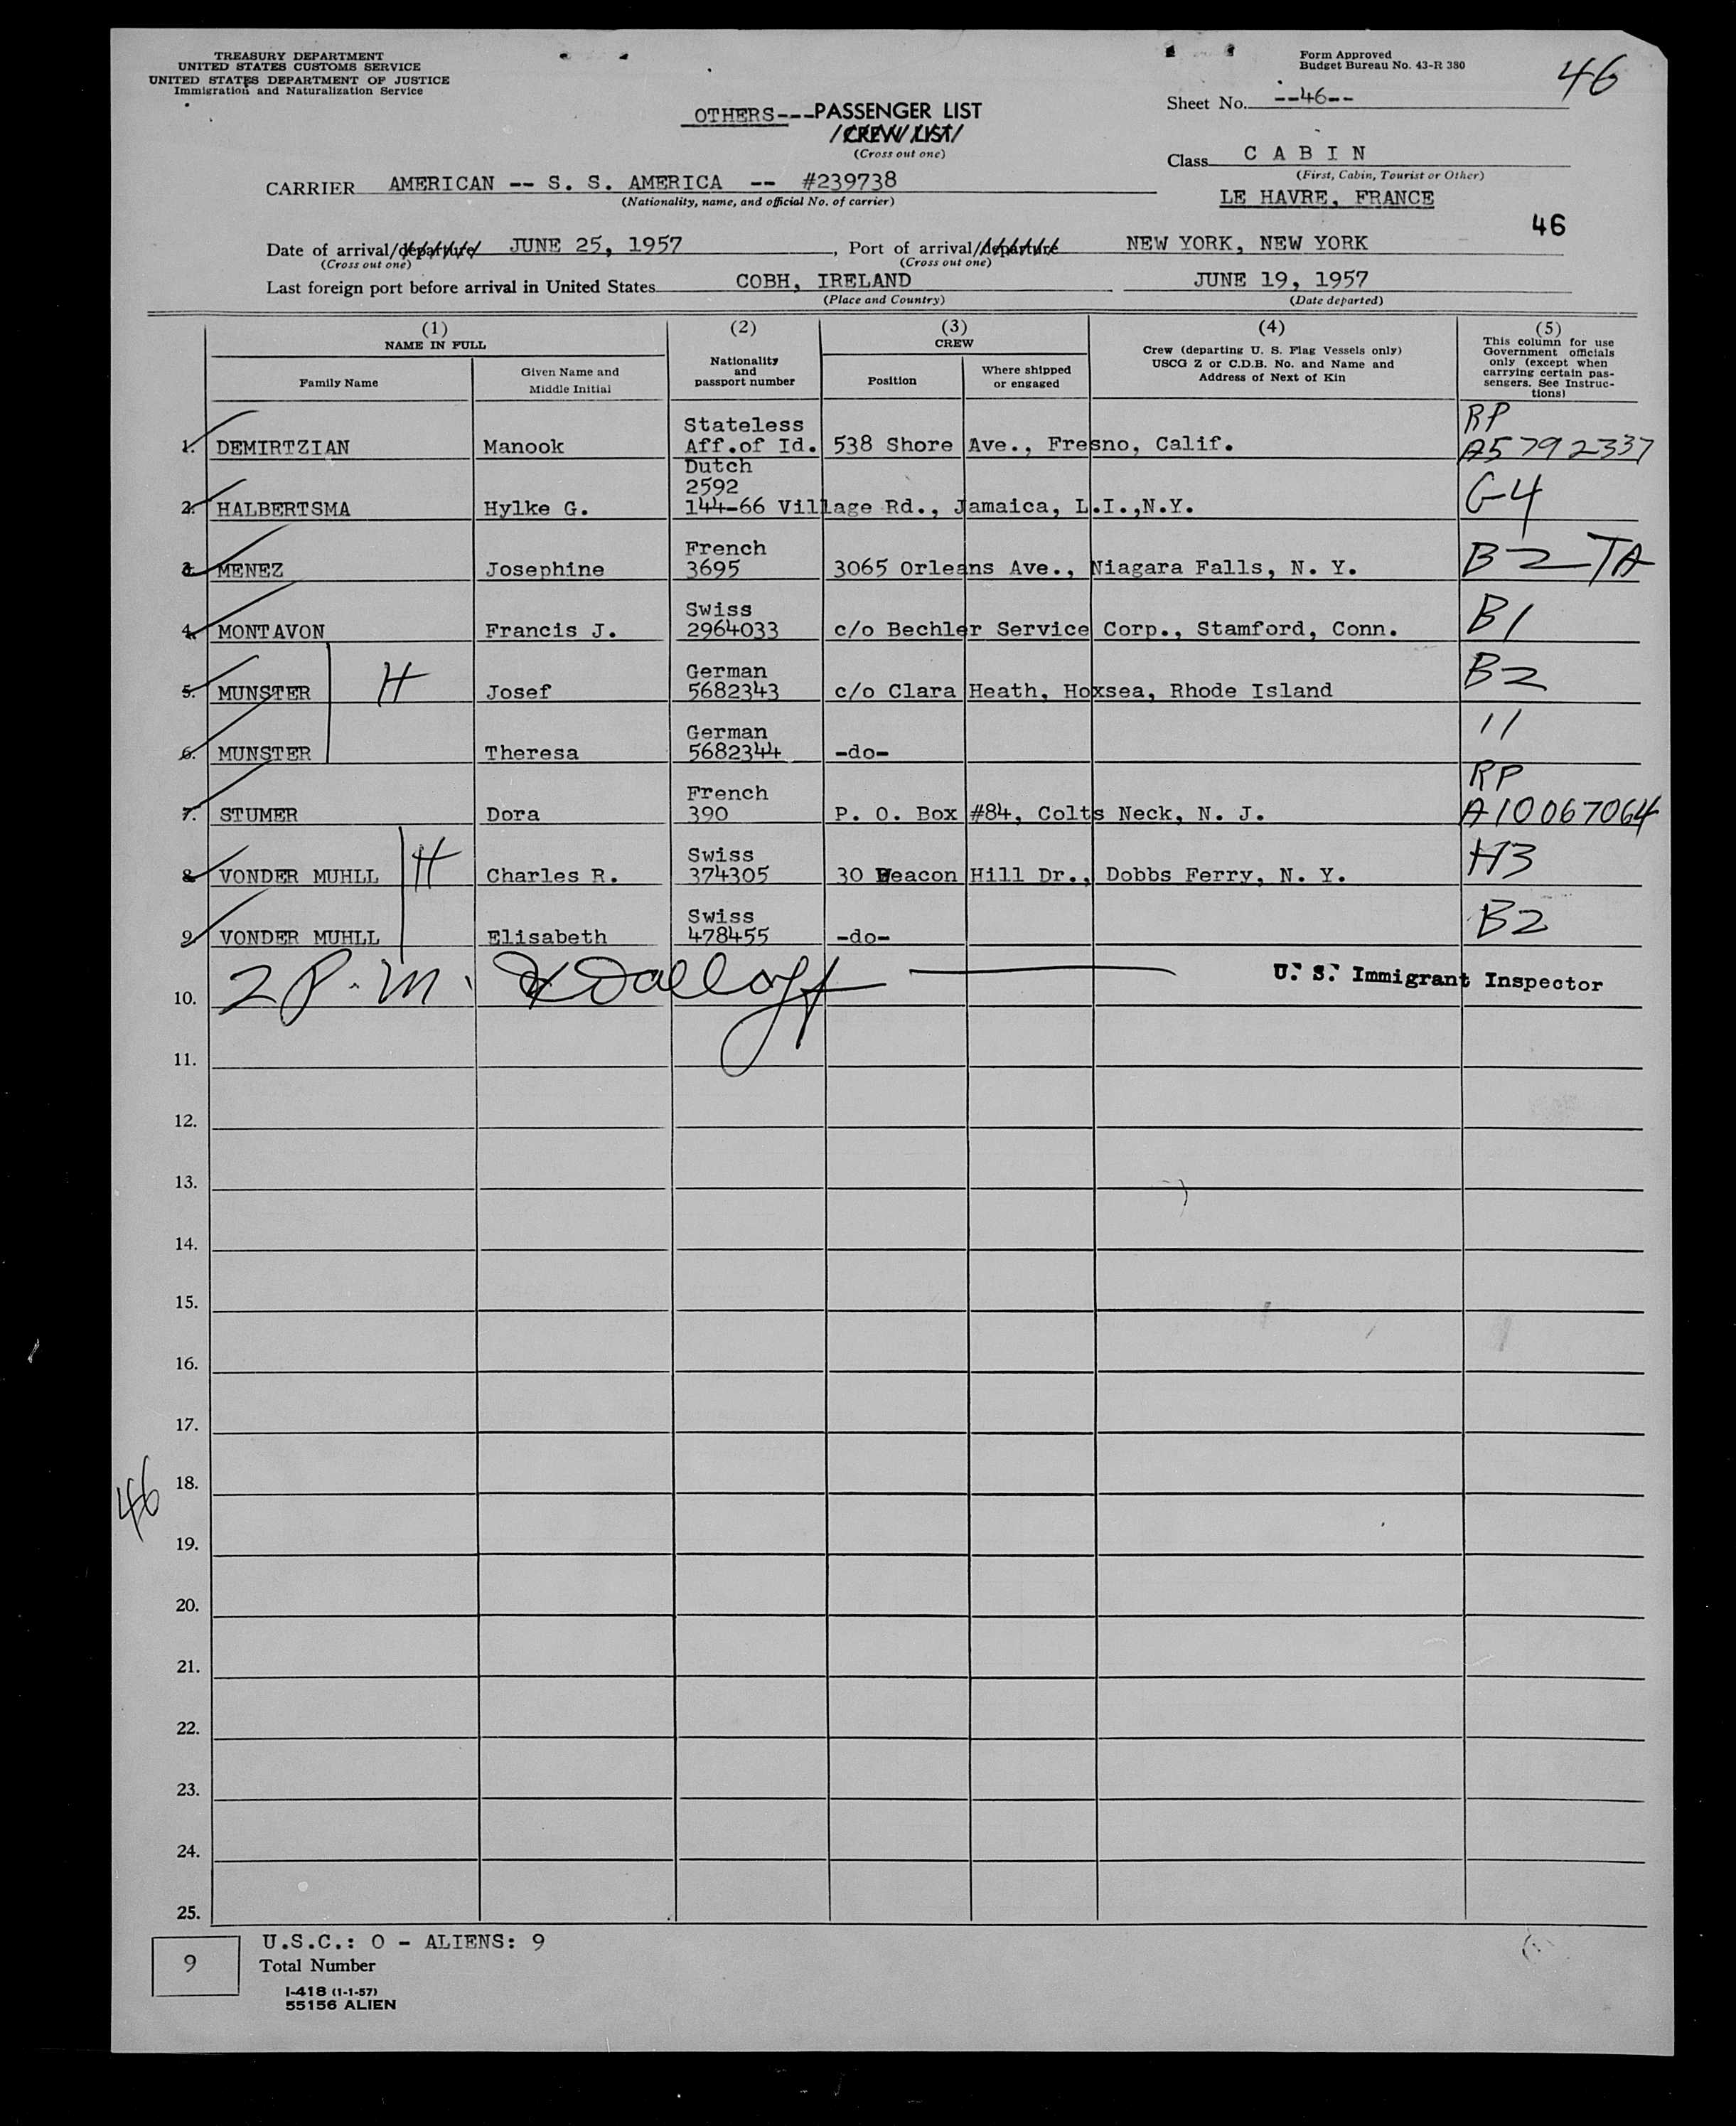 TREASURY DEPARTMENT
UNITED STATES CUSTOMS SERVICE
UNITED STATES DEPARTMENT OF JUSTICE
Immigration and Naturalization Service
Form Approved
Budget Bureau No. 43-R 380
46
Sheet No. --46--
OTHERS---PASSENGER LIST
/CREW/LIST/
(Cross out one)
Class C A B I N
(First, Cabin, Tourist or Other)
CARRIER AMERICAN -- S. S. AMERICA -- #239738
(Nationality, name, and official No. of carrier)
LE HAVRE, FRANCE
46
Date of arrival/departure JUNE 25, 1957, Port of arrival/departure NEW YORK, NEW YORK
(Cross out one) (Cross out one)
Last foreign port before arrival in United States COBH, IRELAND JUNE 19, 1957
(Place and Country) (Date departed)
(1) (2) (3) (4) (5)
NAME IN FULL
Family Name
Given Name and
Middle Initial
Nationality
and
passport number
CREW
Position
Where shipped
or engaged
Crew (departing U. S. Flag Vessels only)
USCG Z or C.D.B. No. and Name and
Address of Next of Kin
This column for use
Government officials
only (except when
carrying certain pas-
sengers. See Instruc-
tions)
Stateless RP
1. DEMIRTZIAN Manook Aff.of Id. 538 Shore Ave., Fresno, Calif. A5792337
Dutch
2592
2. HALBERTSMA Hylke G. 144-66 Village Rd., Jamaica, L.I.,N.Y. G-4
French
3. MENEZ Josephine 3695 3065 Orleans Ave., Niagara Falls, N. Y. B2 TA
Swiss
4. MONTAVON Francis J. 2964033 c/o Bechler Service Corp., Stamford, Conn. B1
German
5. MUNSTER H Josef 5682343 c/o Clara Heath, Hoxsea, Rhode Island B2
German
6. MUNSTER Theresa 5682344 -do- 11
French RP
7. STUMER Dora 390 P. O. Box #84, Colts Neck, N. J. A10067064
Swiss
8. VONDER MUHLL H Charles R. 374305 30 Beacon Hill Dr., Dobbs Ferry, N. Y. H3
Swiss
9. VONDER MUHLL Elisabeth 478455 -do- B2
10. 2 P.M. U. S. Immigrant Inspector
11.
12.
13.
14.
15.
16.
17.
18.
46
19.
20.
21.
22.
23.
24.
25.
9 U.S.C.: 0 - ALIENS: 9
Total Number
I-418 (1-1-57)
55156 ALIEN